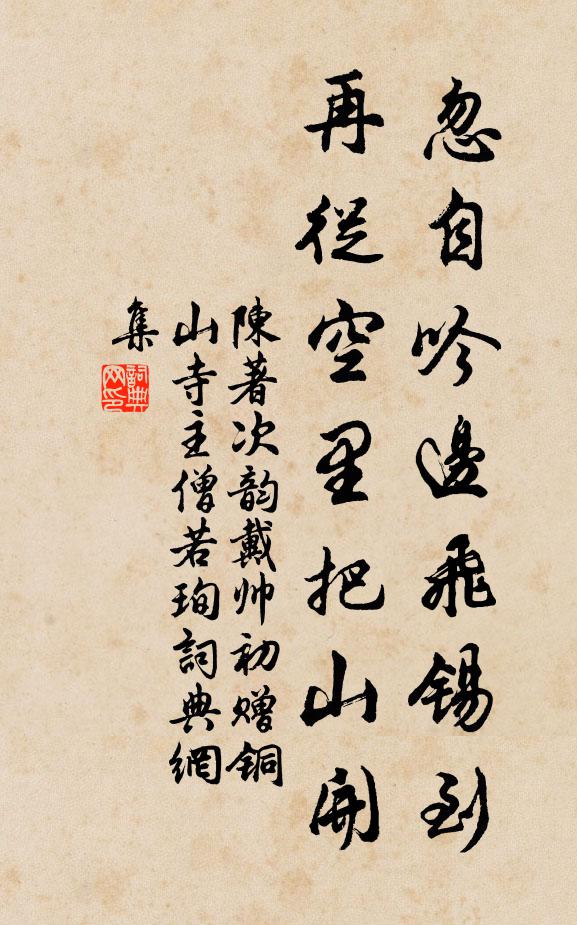 忽自吟邊飛锡到
再從空里把山開
陳著次韵戴帅初赠铜
山寺主僧若珣詞典網
集
詞典网印